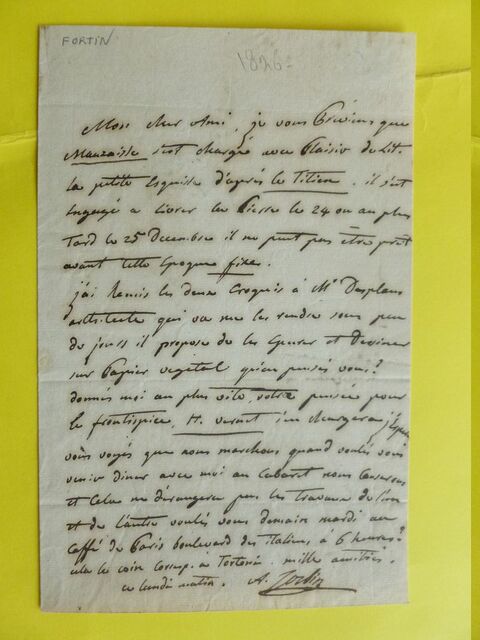 FORTIN
1826
Mon cher ami, je vous préviens que
Mauzaisse s'est chargé avec plaisir de lit.
la petite Esquisse d'après le Titien. il s'est
engagé a livrer la Pierre le 24 ou au plus
tard le 25 Decembre il ne peut pas être prêt
avant cette époque fixe.
j'ai Remis les deux Croquis à Mr Desplans
architecte qui va me les rendre sous peu
de jours il propose de les Epurer et Dessiner
sur Papier vegetal qu'en pensés vous?
donnés moi au plus vite votre pensée pour
le frontispice, H. vernet s'en chargera j'espère
vous voyés que nous marchons quand voulés vous
venir diner avec moi au Cabaret nous Causerons
et Cela ne dérangera pas les Travaux de l'un
et de l'autre voulés vous demain mardi au
Caffé de Paris boulevard des italiens à 6 heures?
cela le coin à Tortoni. mille amitiés.
ce lundi matin. A.